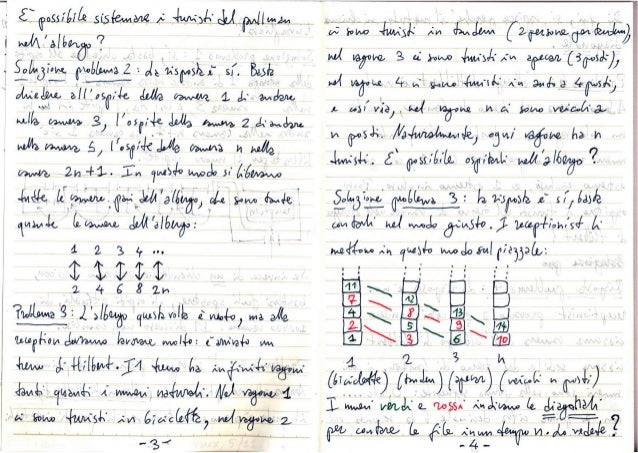 È possibile sistemare i turisti del pullman
nell'albergo?
Soluzione problema 2: la risposta è sí. Basta
chiedere all'ospite della camera 1 di andare
nella camera 3, l'ospite della camera 2 di andare
nella camera 5, l'ospite della camera n nella
camera 2n+1. In questo modo si liberano
tutte le camere pari dell'albergo, che sono tante
quante le camere dell'albergo:
1 2 3 4 ...
2 4 6 8 2n
Problema 3: L'albergo questa volta è vuoto, ma alla
reception dovranno lavorare molto: è arrivato un
treno di Hilbert. Il treno ha infiniti vagoni
tanti quanti i numeri naturali. Nel vagone 1
ci sono turisti in bicicletta, nel vagone 2
-3-
ci sono turisti in tandem (2 persone per tandem),
nel vagone 3 ci sono turisti in apecar (3 posti),
nel vagone 4 ci sono turisti in auto a 4 posti,
e cosí via, nel vagone n ci sono veicoli a
n posti. Naturalmente, ogni vagone ha n
turisti. È possibile ospitarli nell'albergo?
Soluzione problema 3: la risposta è sí, basta
contarli nel modo giusto. I receptionist li
mettono in questo modo sul piazzale:
11
7 12
4 8 13
2 5 9 14
1 3 6 10
1 2 3 n
(biciclette) (tandem) (apecar) (veicoli n posti)
I numeri verdi e rossi indicano le diagonali
per contare le file in un tempo n. Lo vedete?
-4-